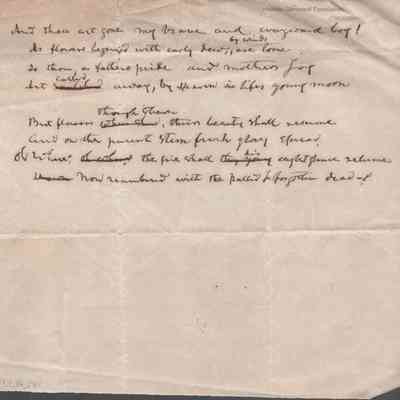 And thou art gone my brave and wayward boy!
As flowers begem'd with early dew, by winds are lorne
So thou, a father's pride and mother's joy
Art called away, by Heaven in life's young moon
But flowers though shorn, their beauty shall resume
And on the parent stem fresh glory spread,
the fire shall his resume
Now numbered with the pallid & forgotten dead